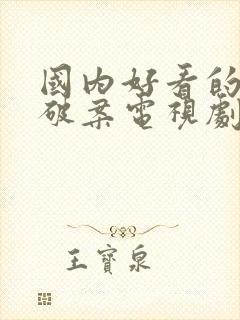 國內好看的
破案電視劇
王寶泉